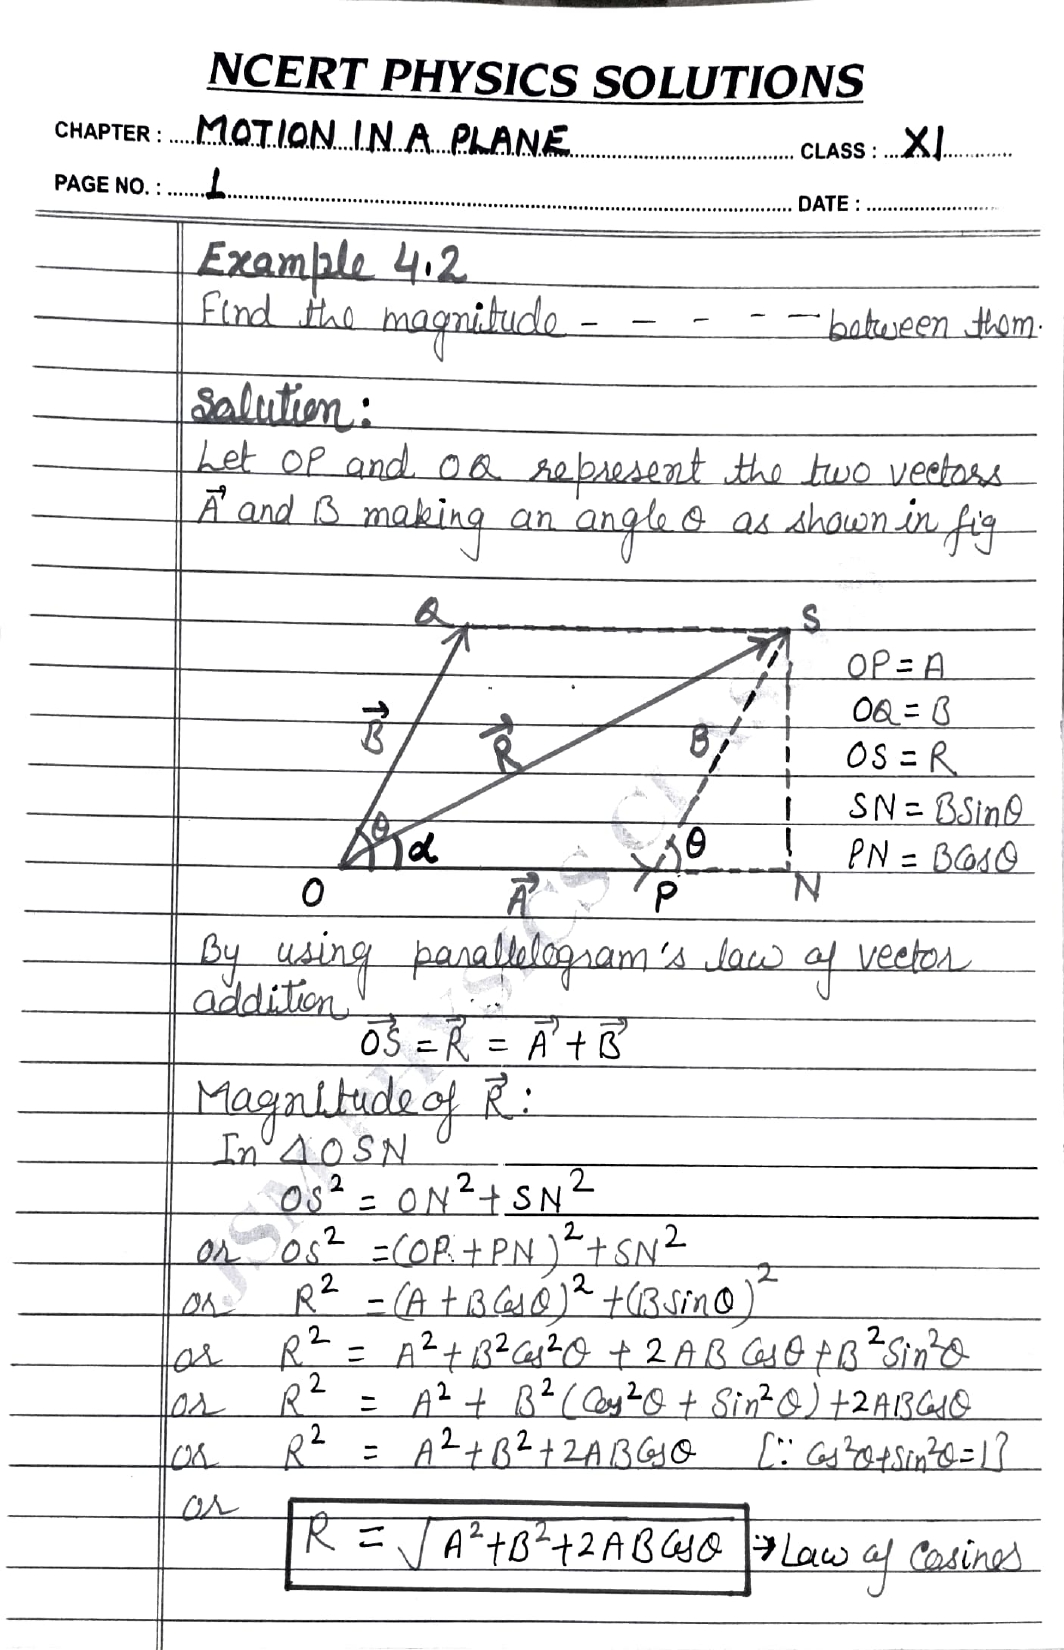 NCERT PHYSICS SOLUTIONS
CHAPTER : MOTION IN A PLANE CLASS : XI
PAGE NO. : 1 DATE :
Example 4.2
Find the magnitude - - - - - between them.
Solution:
Let OP and OQ represent the two vectors
A⃗ and B making an angle θ as shown in fig
Q S
OP = A
B⃗ R⃗ B OQ = B
OS = R
SN = BSinθ
θ α θ PN = BCosθ
O A⃗ P N
By using parallelogram's law of vector
addition
OS⃗ = R⃗ = A⃗ + B⃗
Magnitude of R⃗ :
In △OSN
OS² = ON² + SN²
or OS² = (OP + PN)² + SN²
or R² = (A + BCosθ)² + (BSinθ)²
or R² = A² + B²Cos²θ + 2AB Cosθ + B²Sin²θ
or R² = A² + B²(Cos²θ + Sin²θ) + 2ABCosθ
or R² = A² + B² + 2ABCosθ [∵ Cos²θ+Sin²θ=1]
or
R = √A²+B²+2ABCosθ → Law of Cosines